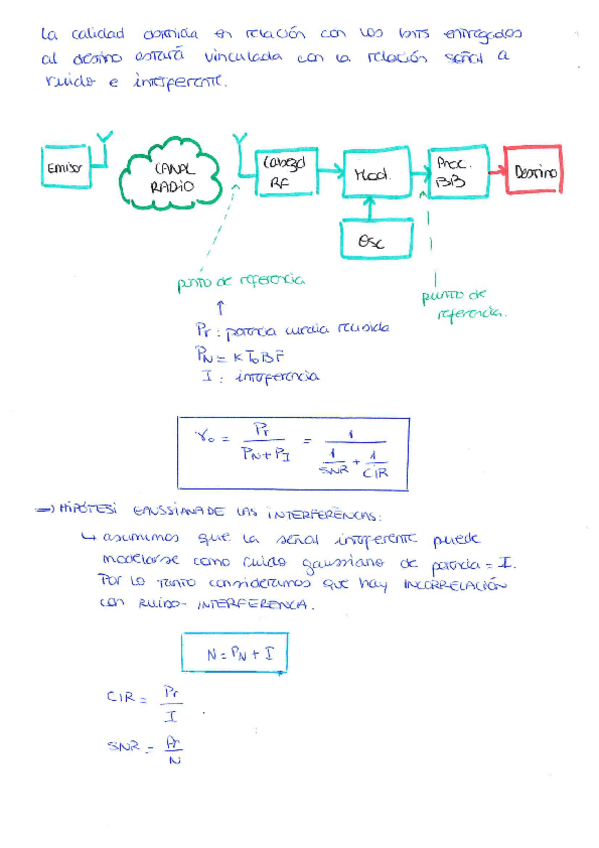 La calidad obtenida en relación con los bits entregados
al destino estará vinculada con la relación señal a
ruido e interferente.
Emisor
CANAL
RADIO
Cabezal
RF
Mod.
Proc.
BB
Destino
OSC
punto de referencia
punto de
referencia.
Pr: potencia media recibida
PN = K To B F
I : interferencia
γo = Pr / (PN + PI) = 1 / (1/SNR + 1/CIR)
→ HIPÓTESI GAUSSIANA DE LAS INTERFERÈNCAS:
↳ asumimos que la señal interferente puede
modelarse como ruido gaussiano de potencia = I.
Por lo tanto consideramos que hay INCORRELACIÓN
con RUIDO-INTERFERENCIA.
N = PN + I
CIR = Pr / I
SNR = Pr / N